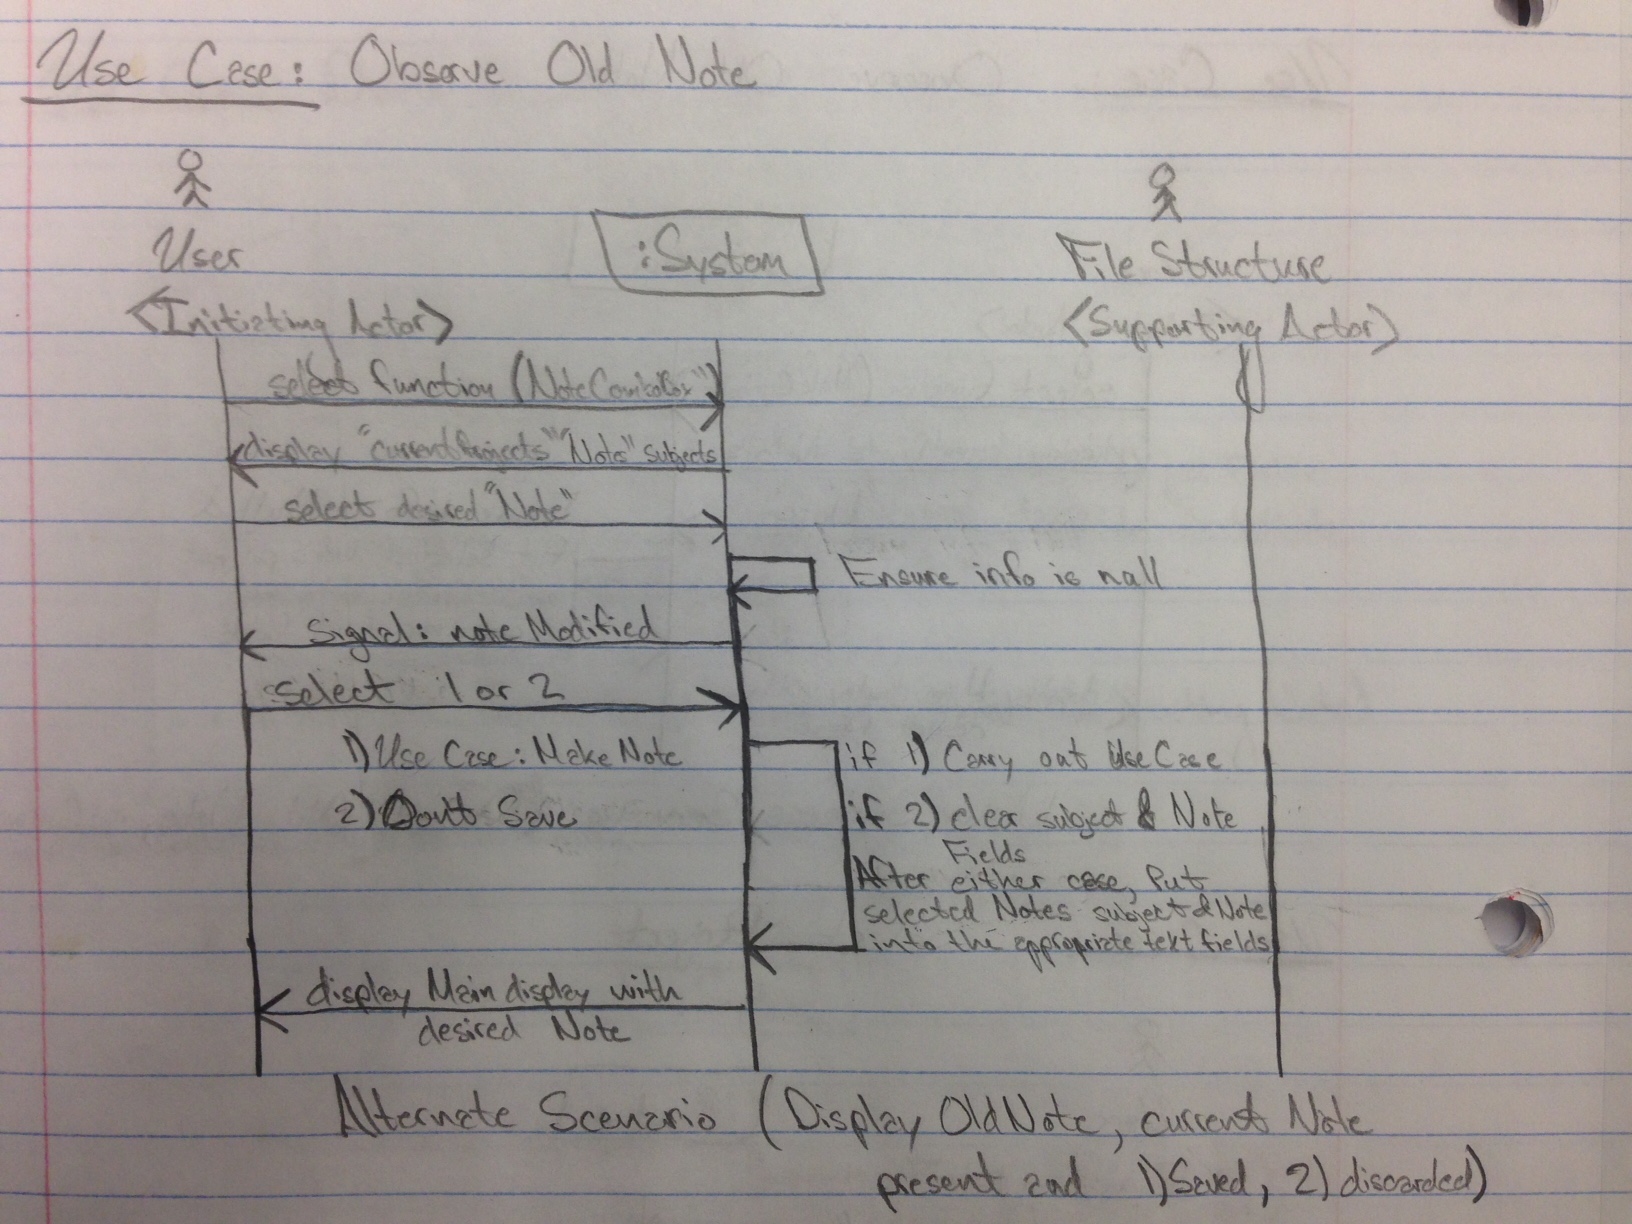 Use Case: Observe Old Note
User
:System
File Structure
<Initiating Actor>
<Supporting Actor>
select function ("NoteComboBox")
display "currentProjects" "Note" subjects
select desired "Note"
Ensure info is null
Signal: note Modified
select 1 or 2
1) Use Case: Make Note
2) Don't Save
if 1) Carry out Use Case
if 2) clear subject & Note
Fields
After either case, Put
selected Notes subject & Note
into the appropriate text fields
display Main display with
desired Note
Alternate Scenario (Display Old Note, current Note
present and 1) Saved, 2) discarded)